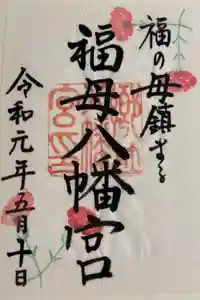 福の母鎮まる
福母八幡宮
令和元年五月十日